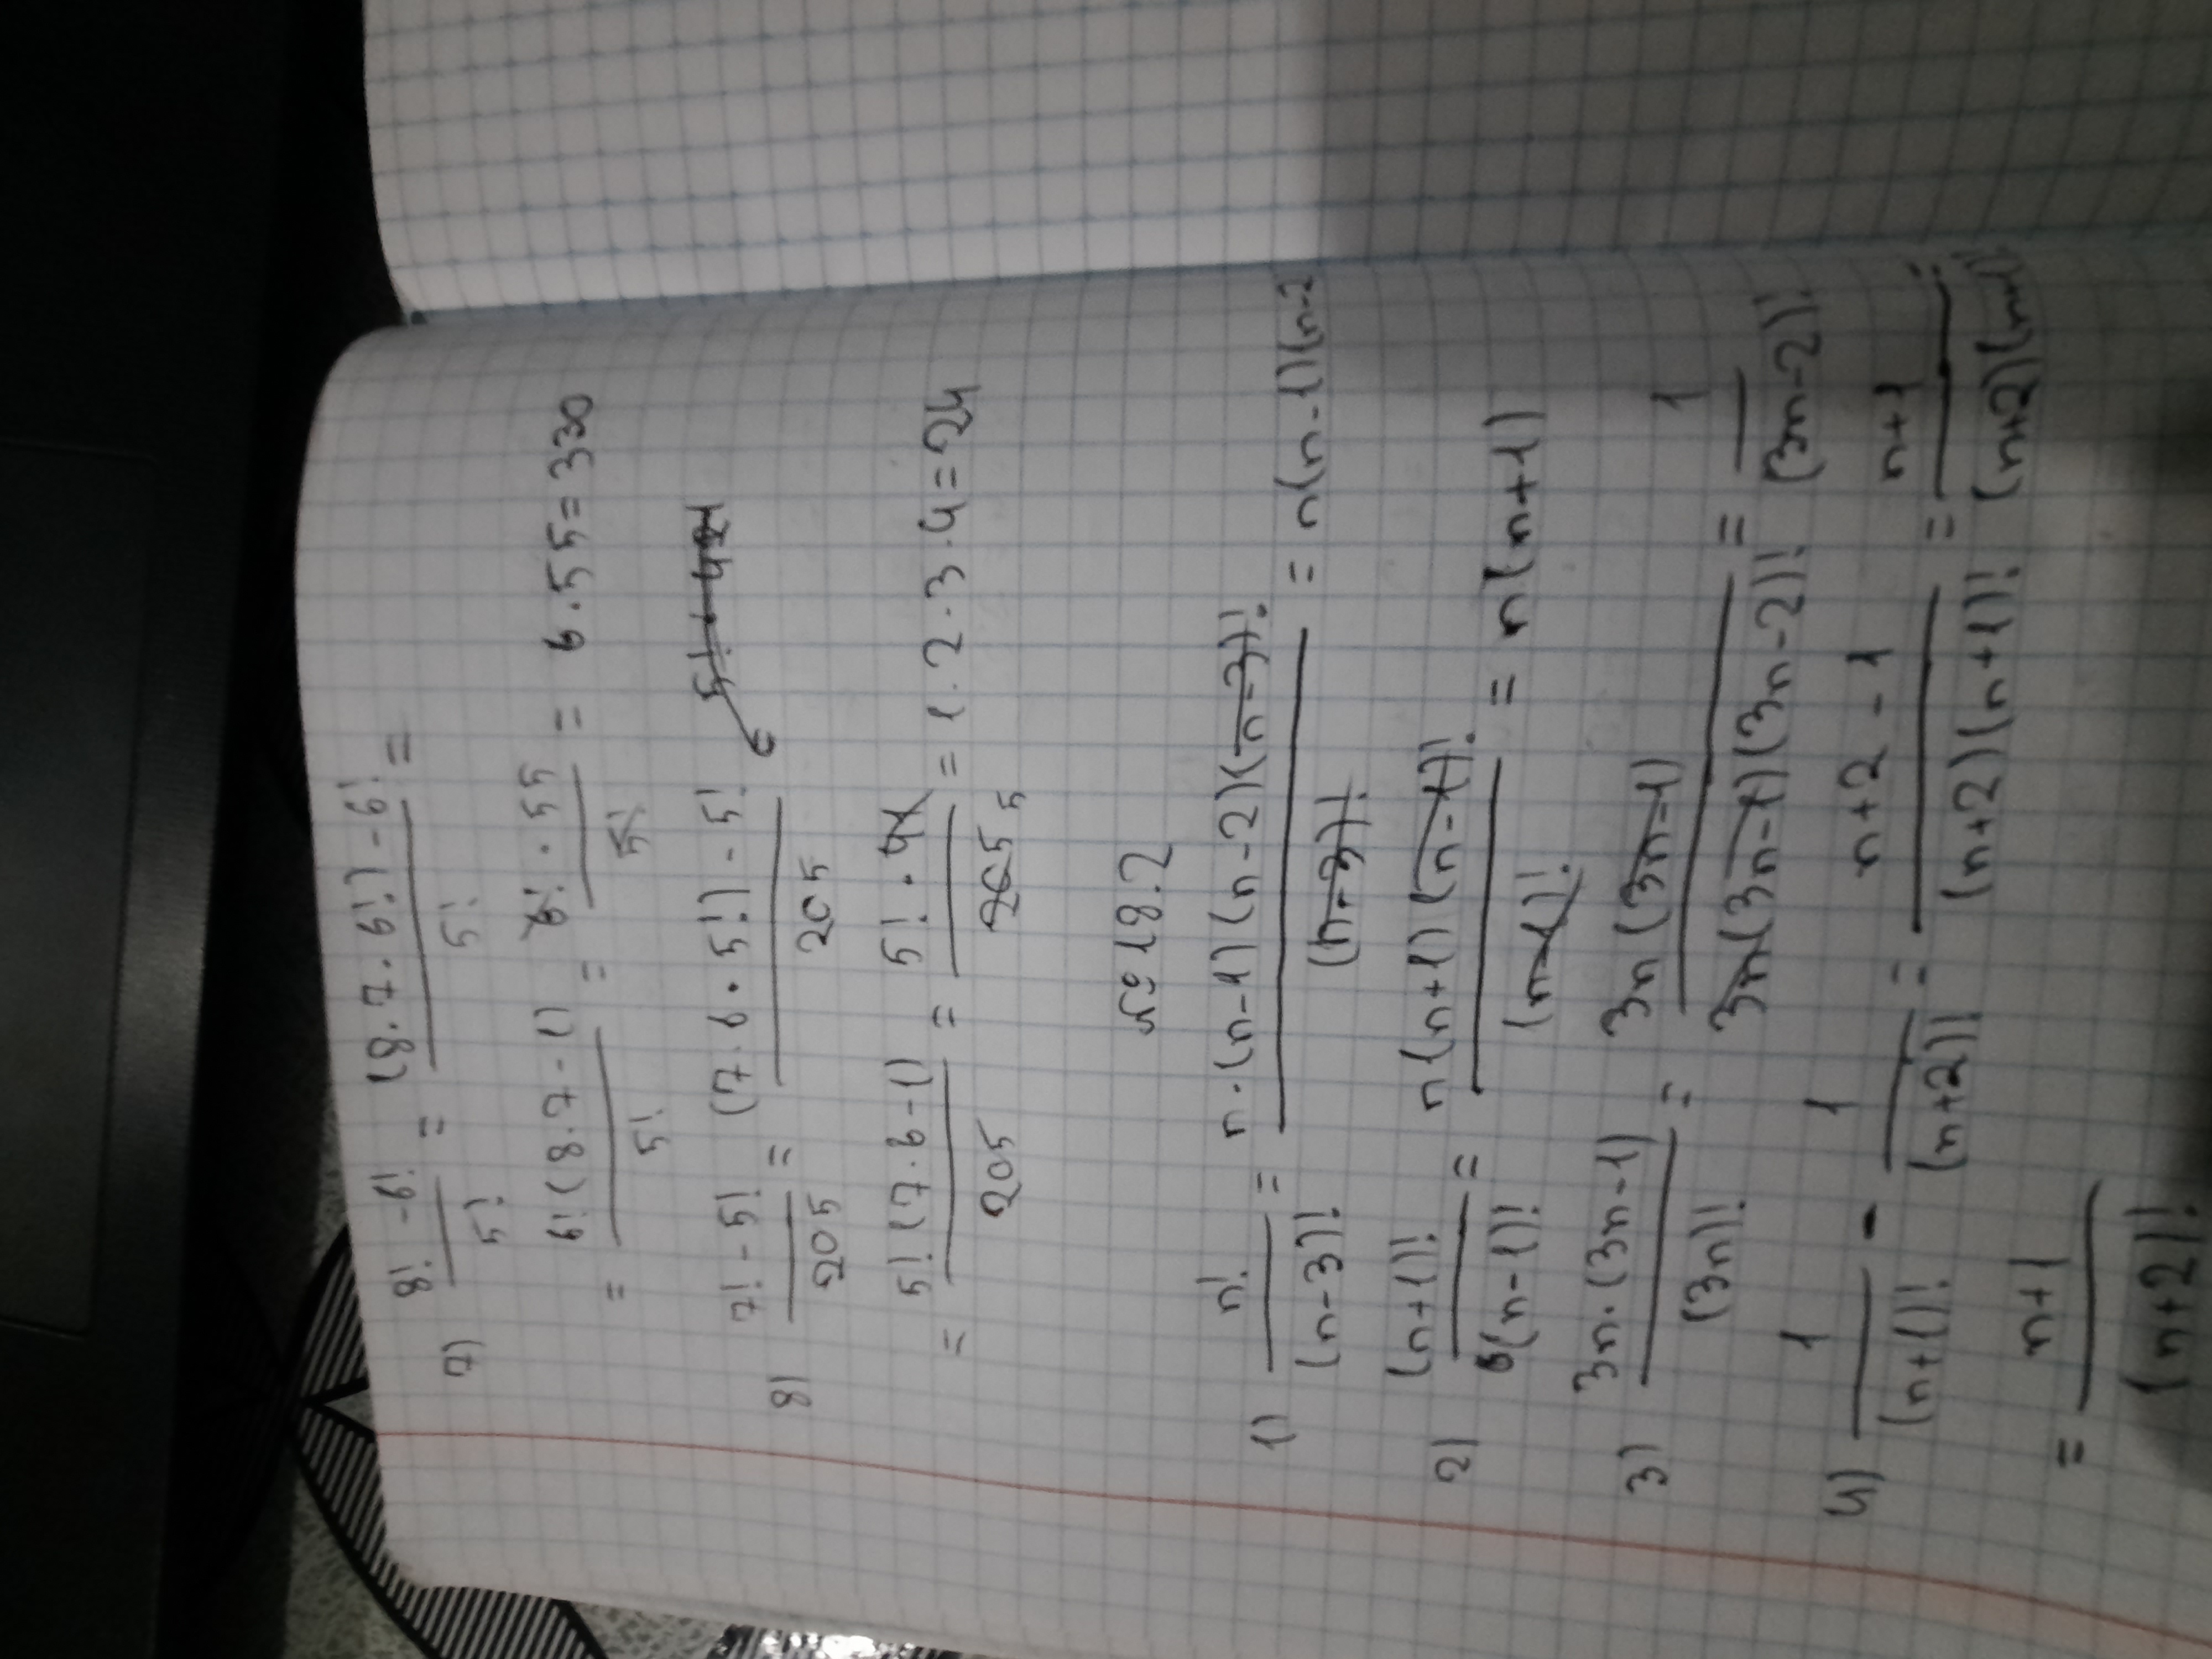 7) (8! - 6!)/5! = ((8·7·6!) - 6!)/5! =
= 6!(8·7-1)/5! = 6!·55/5! = 6·55 = 330
8) (7! - 5!)/205 = ((7·6·5!) - 5!)/205
= 5!(7·6-1)/205 = 5!·41/205 5 = 1·2·3·4 = 24
№ 18.2
1) n!/(n-3)! = n·(n-1)(n-2)(n-3)!/(n-3)! = n(n-1)(n-2
2) (n+1)!/(n-1)! = n(n+1)(n-1)!/(n-1)! = n(n+1)
3) 3n·(3n-1)/(3n)! = 3n(3n-1)/3n(3n-1)(3n-2)! = 1/(3n-2)!
4) 1/(n+1)! - 1/(n+2)! = (n+2-1)/(n+2)(n+1)! = (n+1)/(n+2)(n+1)! =
= (n+1)/(n+2)!